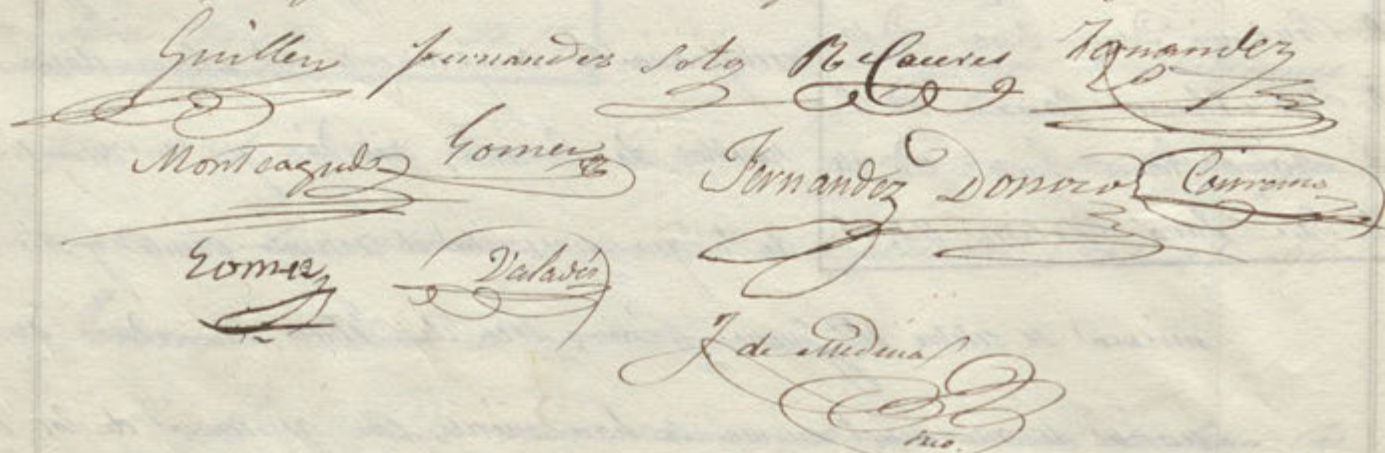 Guillen Fernandez Soto R Caceres Fernandez
Monteagudo Gomez Fernandez Donoro
Gomez Valadés
J de Medina
Srio.